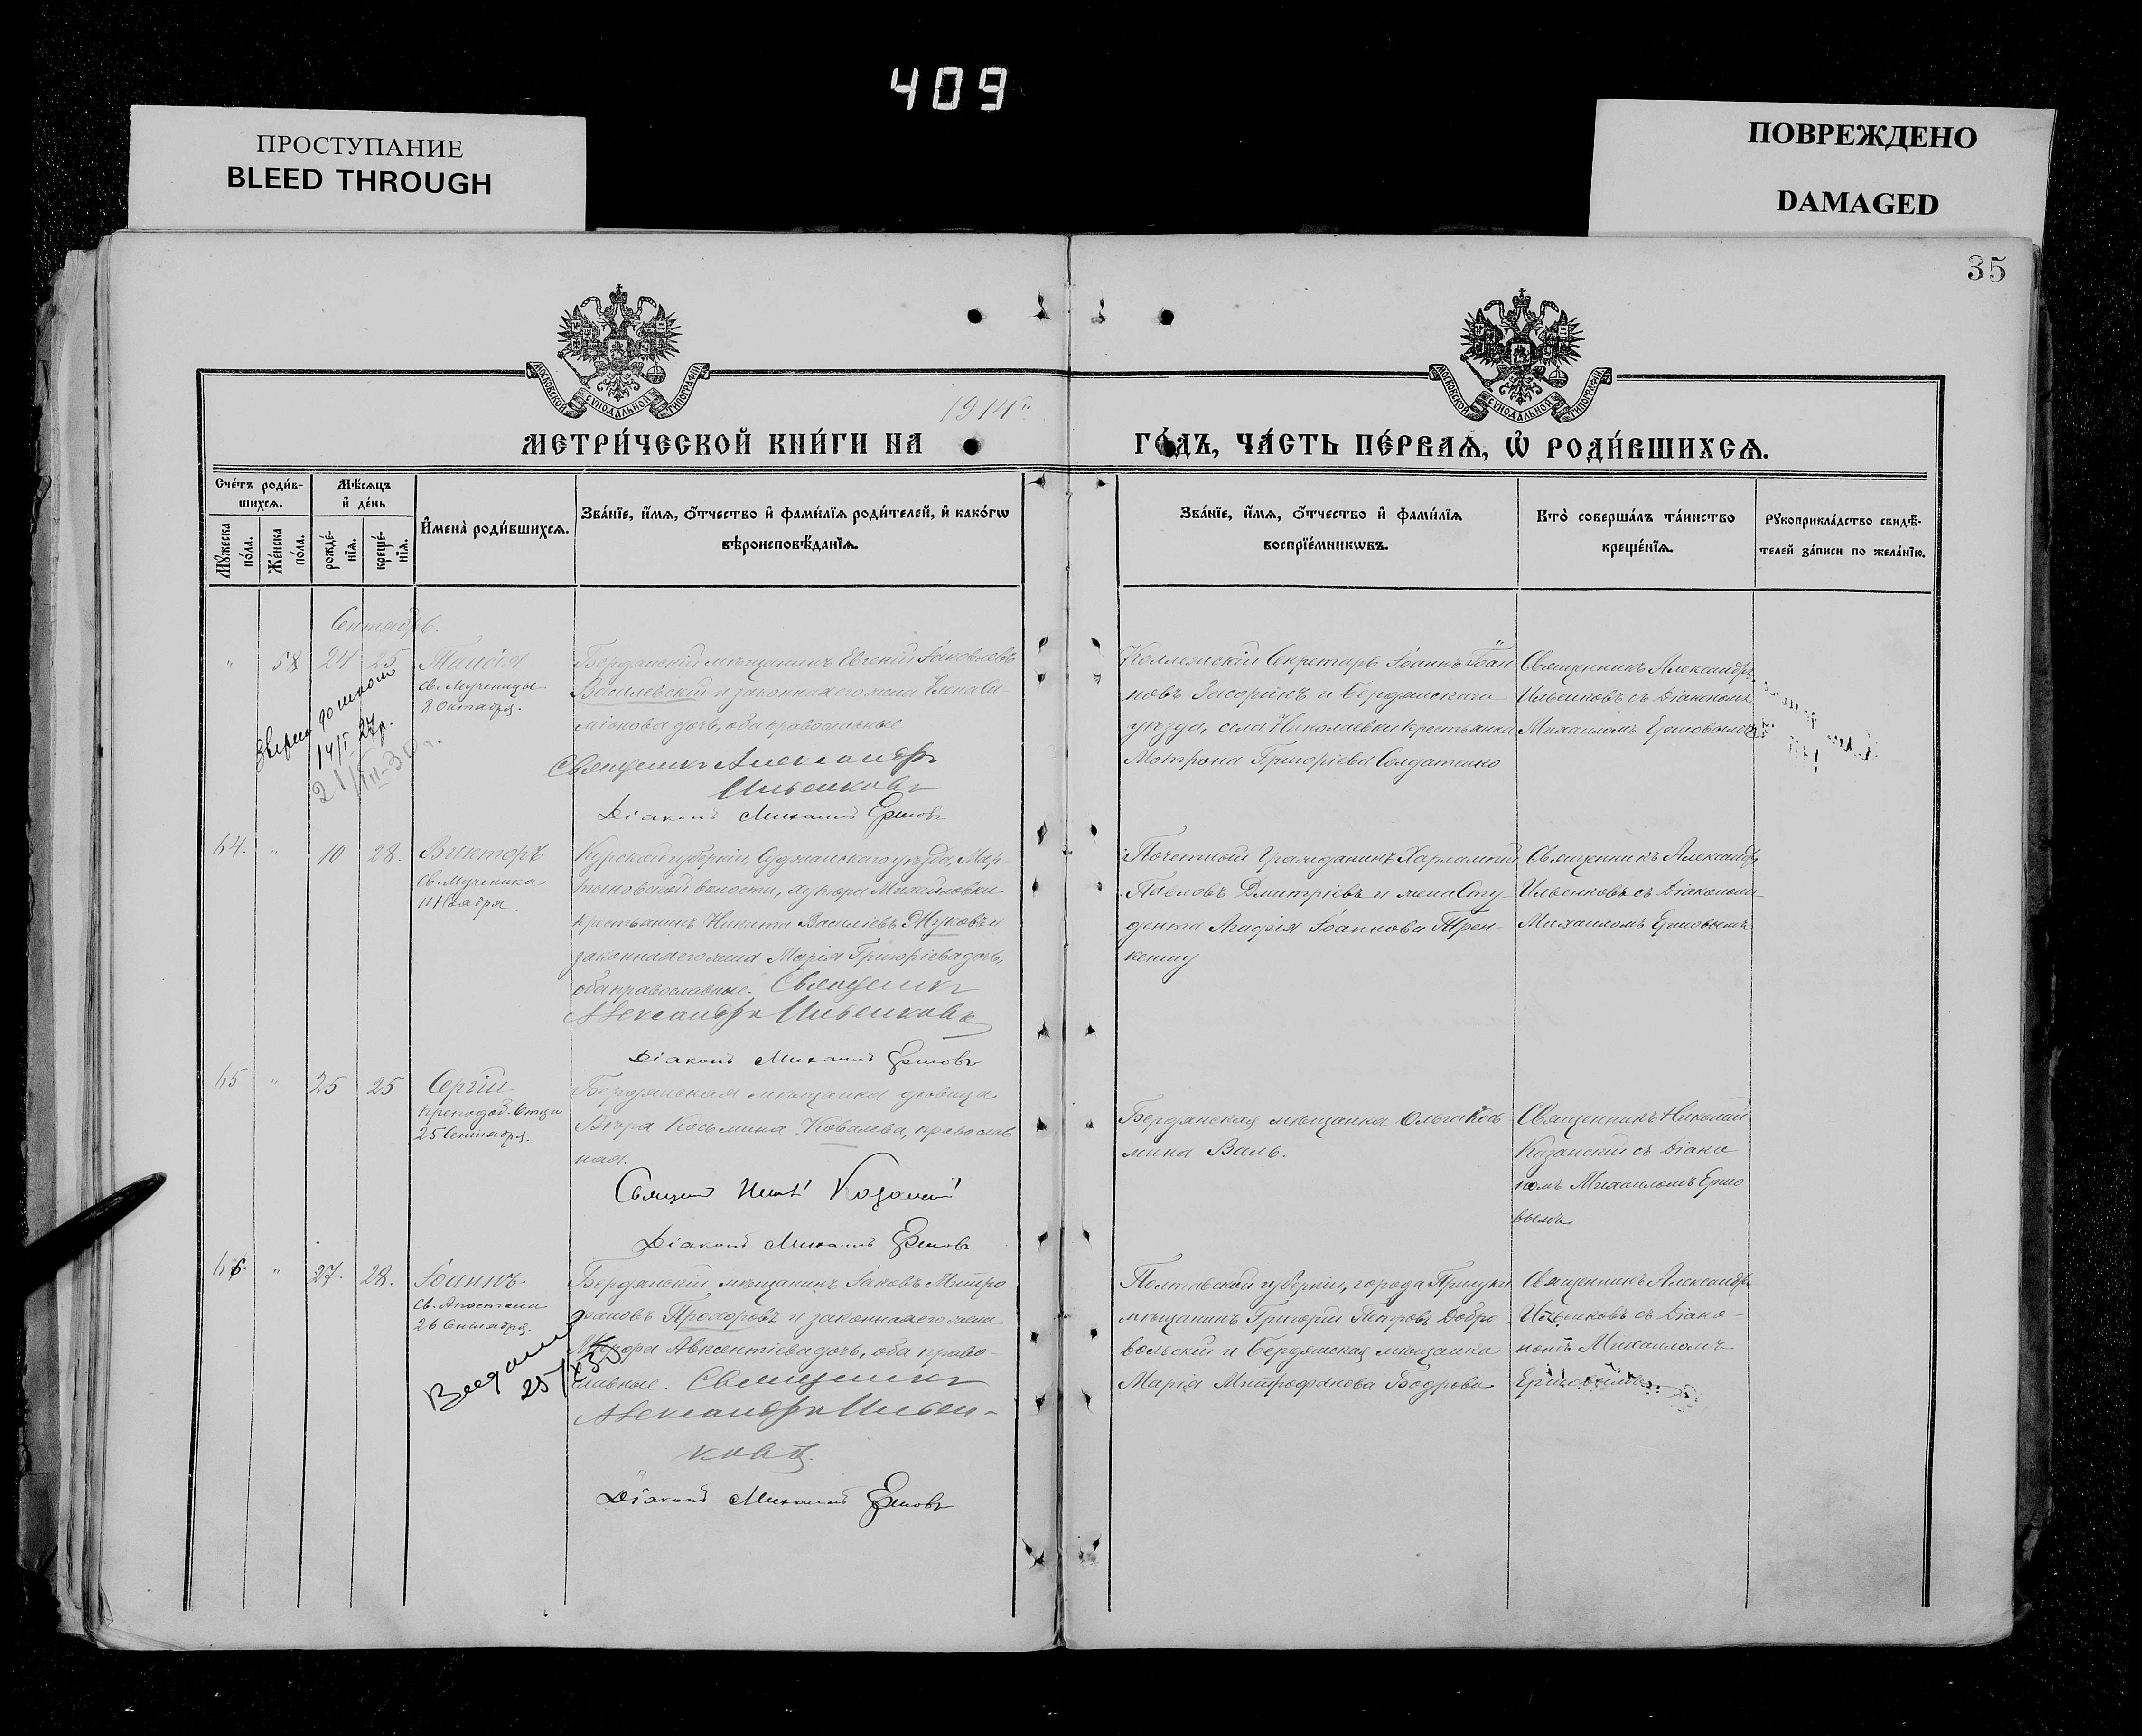 409
ПРОСТУПАНИЕ
BLEED THROUGH
ПОВРЕЖДЕНО
DAMAGED
35
МОСКОВСКОЙ СѴНОДАЛЬНОЙ ТИПОГРАФІИ
МОСКОВСКОЙ СѴНОДАЛЬНОЙ ТИПОГРАФІИ
1914 г.
МЕТРИ́ЧЕСКОЙ КНИ́ГИ НА
ГО́ДЪ, ЧА́СТЬ ПЕ́РВАѦ, Ѡ҆ РОДИ́ВШИХСѦ.
Сче́тъ роди́в-
шихсѧ.
Мꙋ́жеска
по́ла.
Же́нска
по́ла.
Мѣ́сѧцъ
и҆ де́нь
рожде́-
нїѧ.
креще́-
нїѧ.
И҆мена̀ роди́вшихсѧ.
Зва́нїе, и҆́мѧ, ѻ҆́тчество и҆ фами́лїѧ роди́телей, и҆ како́гѡ
вѣроисповѣ́данїѧ.
Зва́нїе, и҆́мѧ, ѻ҆́тчество и҆ фами́лїѧ
воспрїе́мникѡвъ.
Кто̀ соверша́лъ та́инство
креще́нїѧ.
Рꙋкоприкла́дство свидѣ́-
телей за́писи по жела́нїю.
Сентябрь.
" 58 24 25 Таисія
св. Мученицы
8 Октября.
Бердянскій мѣщанинъ Евгеній Іаковлевъ
Василевскій и законная его жена Елена Си-
міонова дочь, оба православные
Священникъ Александръ
Ильенковъ
Діаконъ Михаилъ Ершовъ
Коллежскій Секретарь Іоаннъ Іоан
новъ Засоринъ и Бердянскаго
уѣзда, села Николаевки крестьянка
Матрона Григоріева Солдатенко
Священникъ Александръ
Ильенковъ съ Діакономъ
Михаиломъ Ершовымъ
14/I 27 г.
21/III-30 г.
64. " 10 28. Викторъ
Св. Мученика
11 Ноября.
Курской губерніи, Суджанскаго уѣзда, Мар-
тыновской волости, хутора Михайловки
крестьянинъ Никита Василіевъ Жуковъ и
законная его жена Марія Григоріева дочь,
оба православные. Священникъ
Александръ Ильенковъ
Діаконъ Михаилъ Ершовъ
Почетный Гражданинъ Харлампій
Павловъ Дмитріевъ и жена Сту-
дента Агафія Іоаннова Трен-
Священникъ Александръ
Ильенковъ съ Діакономъ
Михаиломъ Ершовымъ
65 " 25 25 Сергій
преподоб. Отца
25 Сентября.
Бердянская мѣщанка дѣвица
Вѣра Косьмина Ковалева, православ
ная.
Казанскій
Діаконъ Михаилъ Ершовъ
Бердянская мѣщанка Ольга Кось-
мина Валь.
Священникъ Николай
Казанскій съ Діако
номъ Михаиломъ Ершо
вымъ
66. " 27. 28. Іоаннъ
св. Апостола
26 Сентября.
Бердянскій мѣщанинъ Іаковъ Митро
фановъ Прохоровъ и законная его жена
Авксентіева дочь, оба право-
славные. Священникъ
Александръ Ильен-
ковъ.
Діаконъ Михаилъ Ершовъ
Полтавской губерніи, города Прилуки
мѣщанинъ Григорій Петровъ Добро
вольскій и Бердянская мѣщанка
Марія Митрофанова Бодрова
Священникъ Александръ
Ильенковъ съ Діако-
номъ Михаиломъ
Ершовымъ